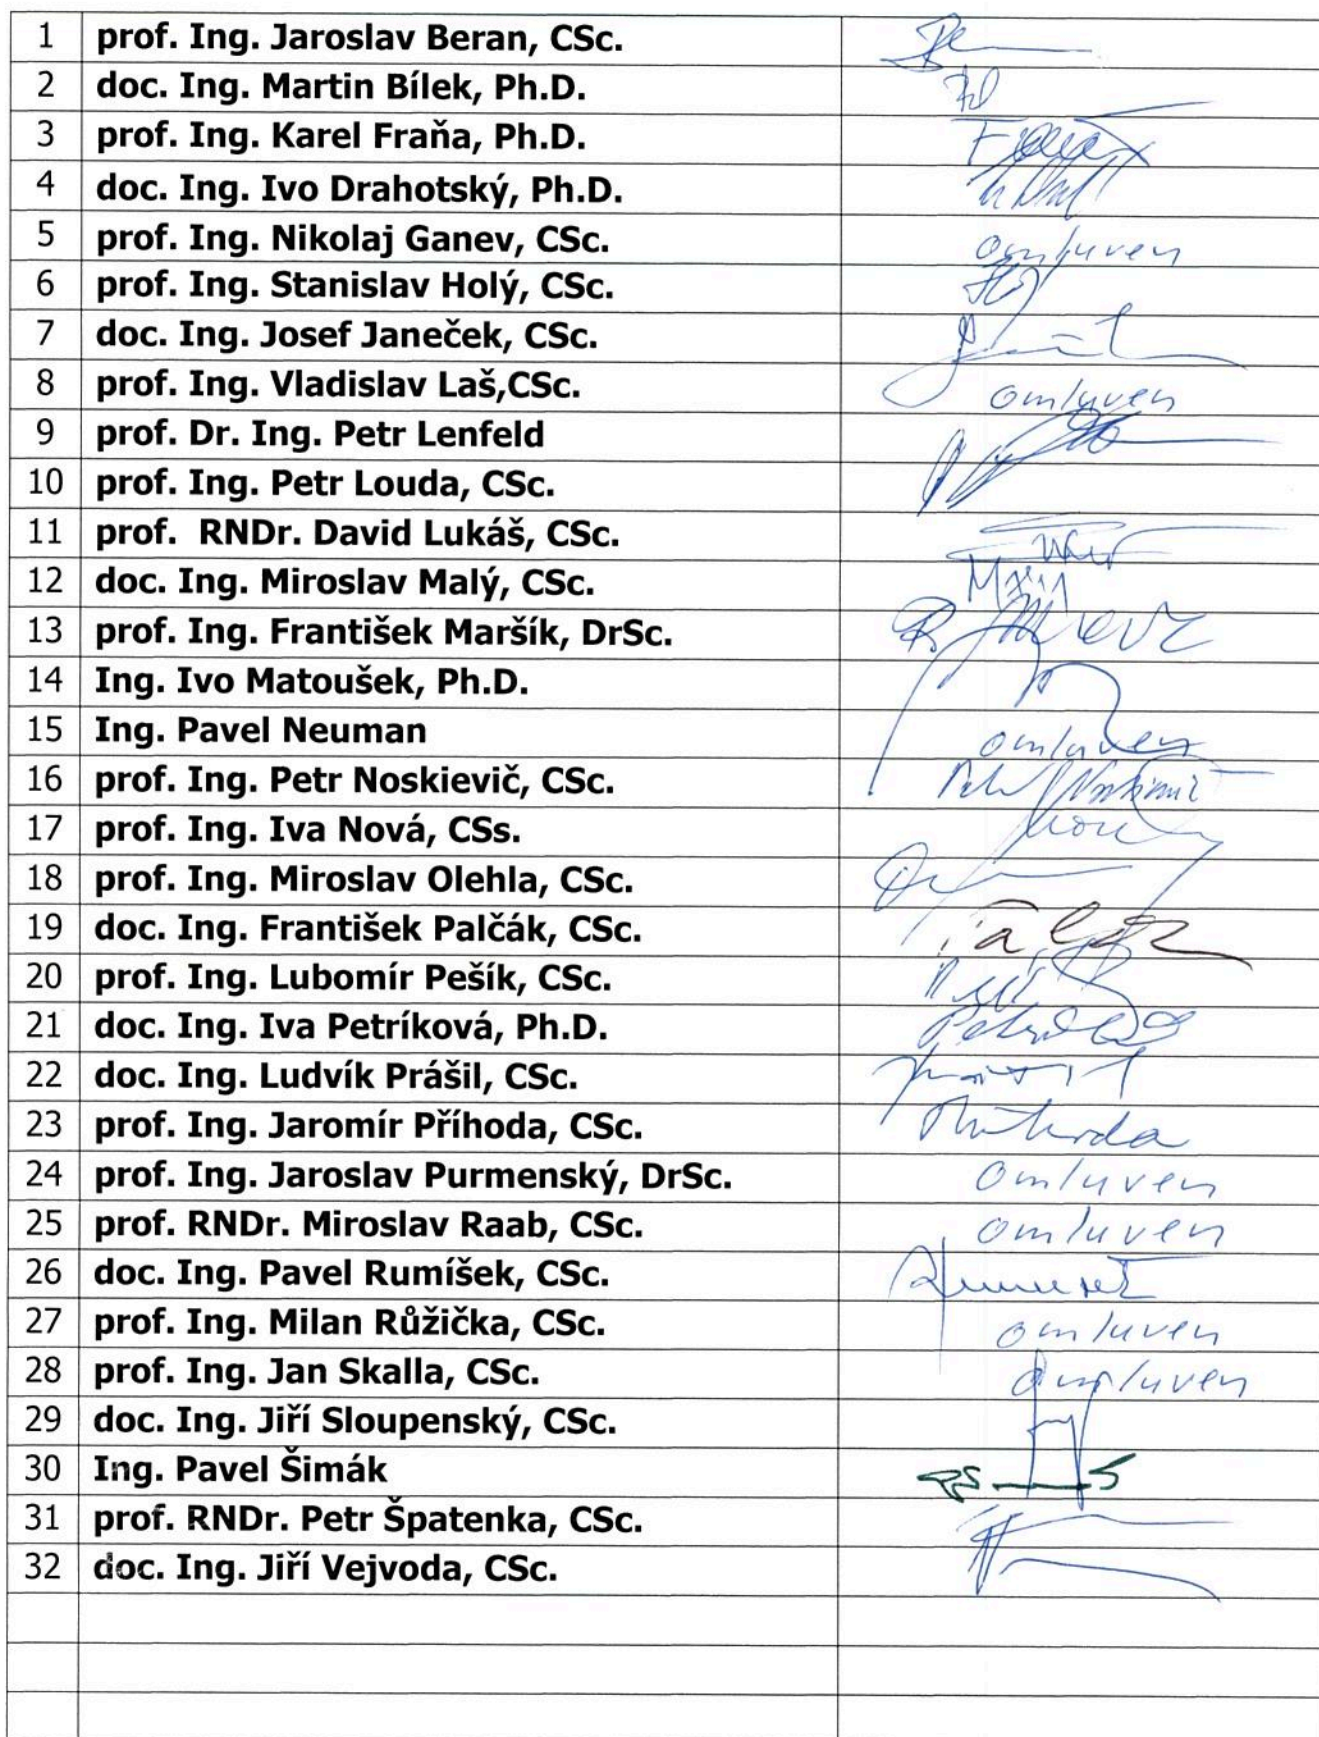 1 prof. Ing. Jaroslav Beran, CSc.
2 doc. Ing. Martin Bílek, Ph.D.
3 prof. Ing. Karel Fraňa, Ph.D.
4 doc. Ing. Ivo Drahotský, Ph.D.
5 prof. Ing. Nikolaj Ganev, CSc. omluven
6 prof. Ing. Stanislav Holý, CSc.
7 doc. Ing. Josef Janeček, CSc.
8 prof. Ing. Vladislav Laš,CSc. omluven
9 prof. Dr. Ing. Petr Lenfeld
10 prof. Ing. Petr Louda, CSc.
11 prof. RNDr. David Lukáš, CSc.
12 doc. Ing. Miroslav Malý, CSc.
13 prof. Ing. František Maršík, DrSc.
14 Ing. Ivo Matoušek, Ph.D.
15 Ing. Pavel Neuman omluven
16 prof. Ing. Petr Noskievič, CSc.
17 prof. Ing. Iva Nová, CSs.
18 prof. Ing. Miroslav Olehla, CSc.
19 doc. Ing. František Palčák, CSc.
20 prof. Ing. Lubomír Pešík, CSc.
21 doc. Ing. Iva Petríková, Ph.D.
22 doc. Ing. Ludvík Prášil, CSc.
23 prof. Ing. Jaromír Příhoda, CSc.
24 prof. Ing. Jaroslav Purmenský, DrSc. omluven
25 prof. RNDr. Miroslav Raab, CSc. omluven
26 doc. Ing. Pavel Rumíšek, CSc.
27 prof. Ing. Milan Růžička, CSc. omluven
28 prof. Ing. Jan Skalla, CSc. omluven
29 doc. Ing. Jiří Sloupenský, CSc.
30 Ing. Pavel Šimák
31 prof. RNDr. Petr Špatenka, CSc.
32 doc. Ing. Jiří Vejvoda, CSc.